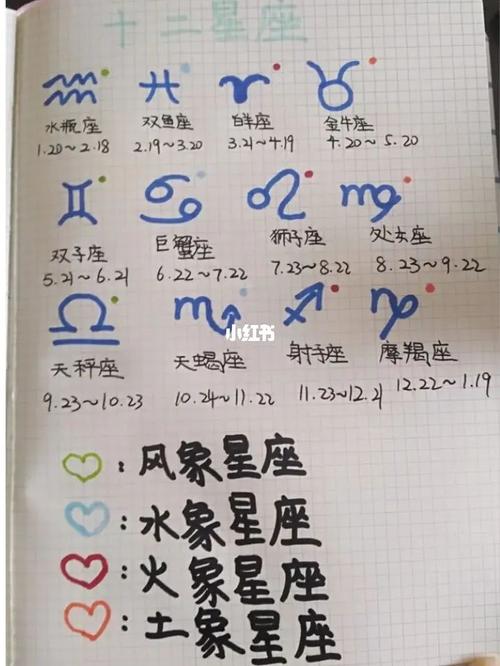 十二星座
水瓶座 双鱼座 白羊座 金牛座
1.20~2.18 2.19~3.20 3.21~4.19 4.20~5.20
双子座 巨蟹座 狮子座 处女座
5.21~6.21 6.22~7.22 7.23~8.22 8.23~9.22
小红书
天秤座 天蝎座 射手座 摩羯座
9.23~10.23 10.24~11.22 11.23~12.21 12.22~1.19
：风象星座
：水象星座
：火象星座
：土象星座